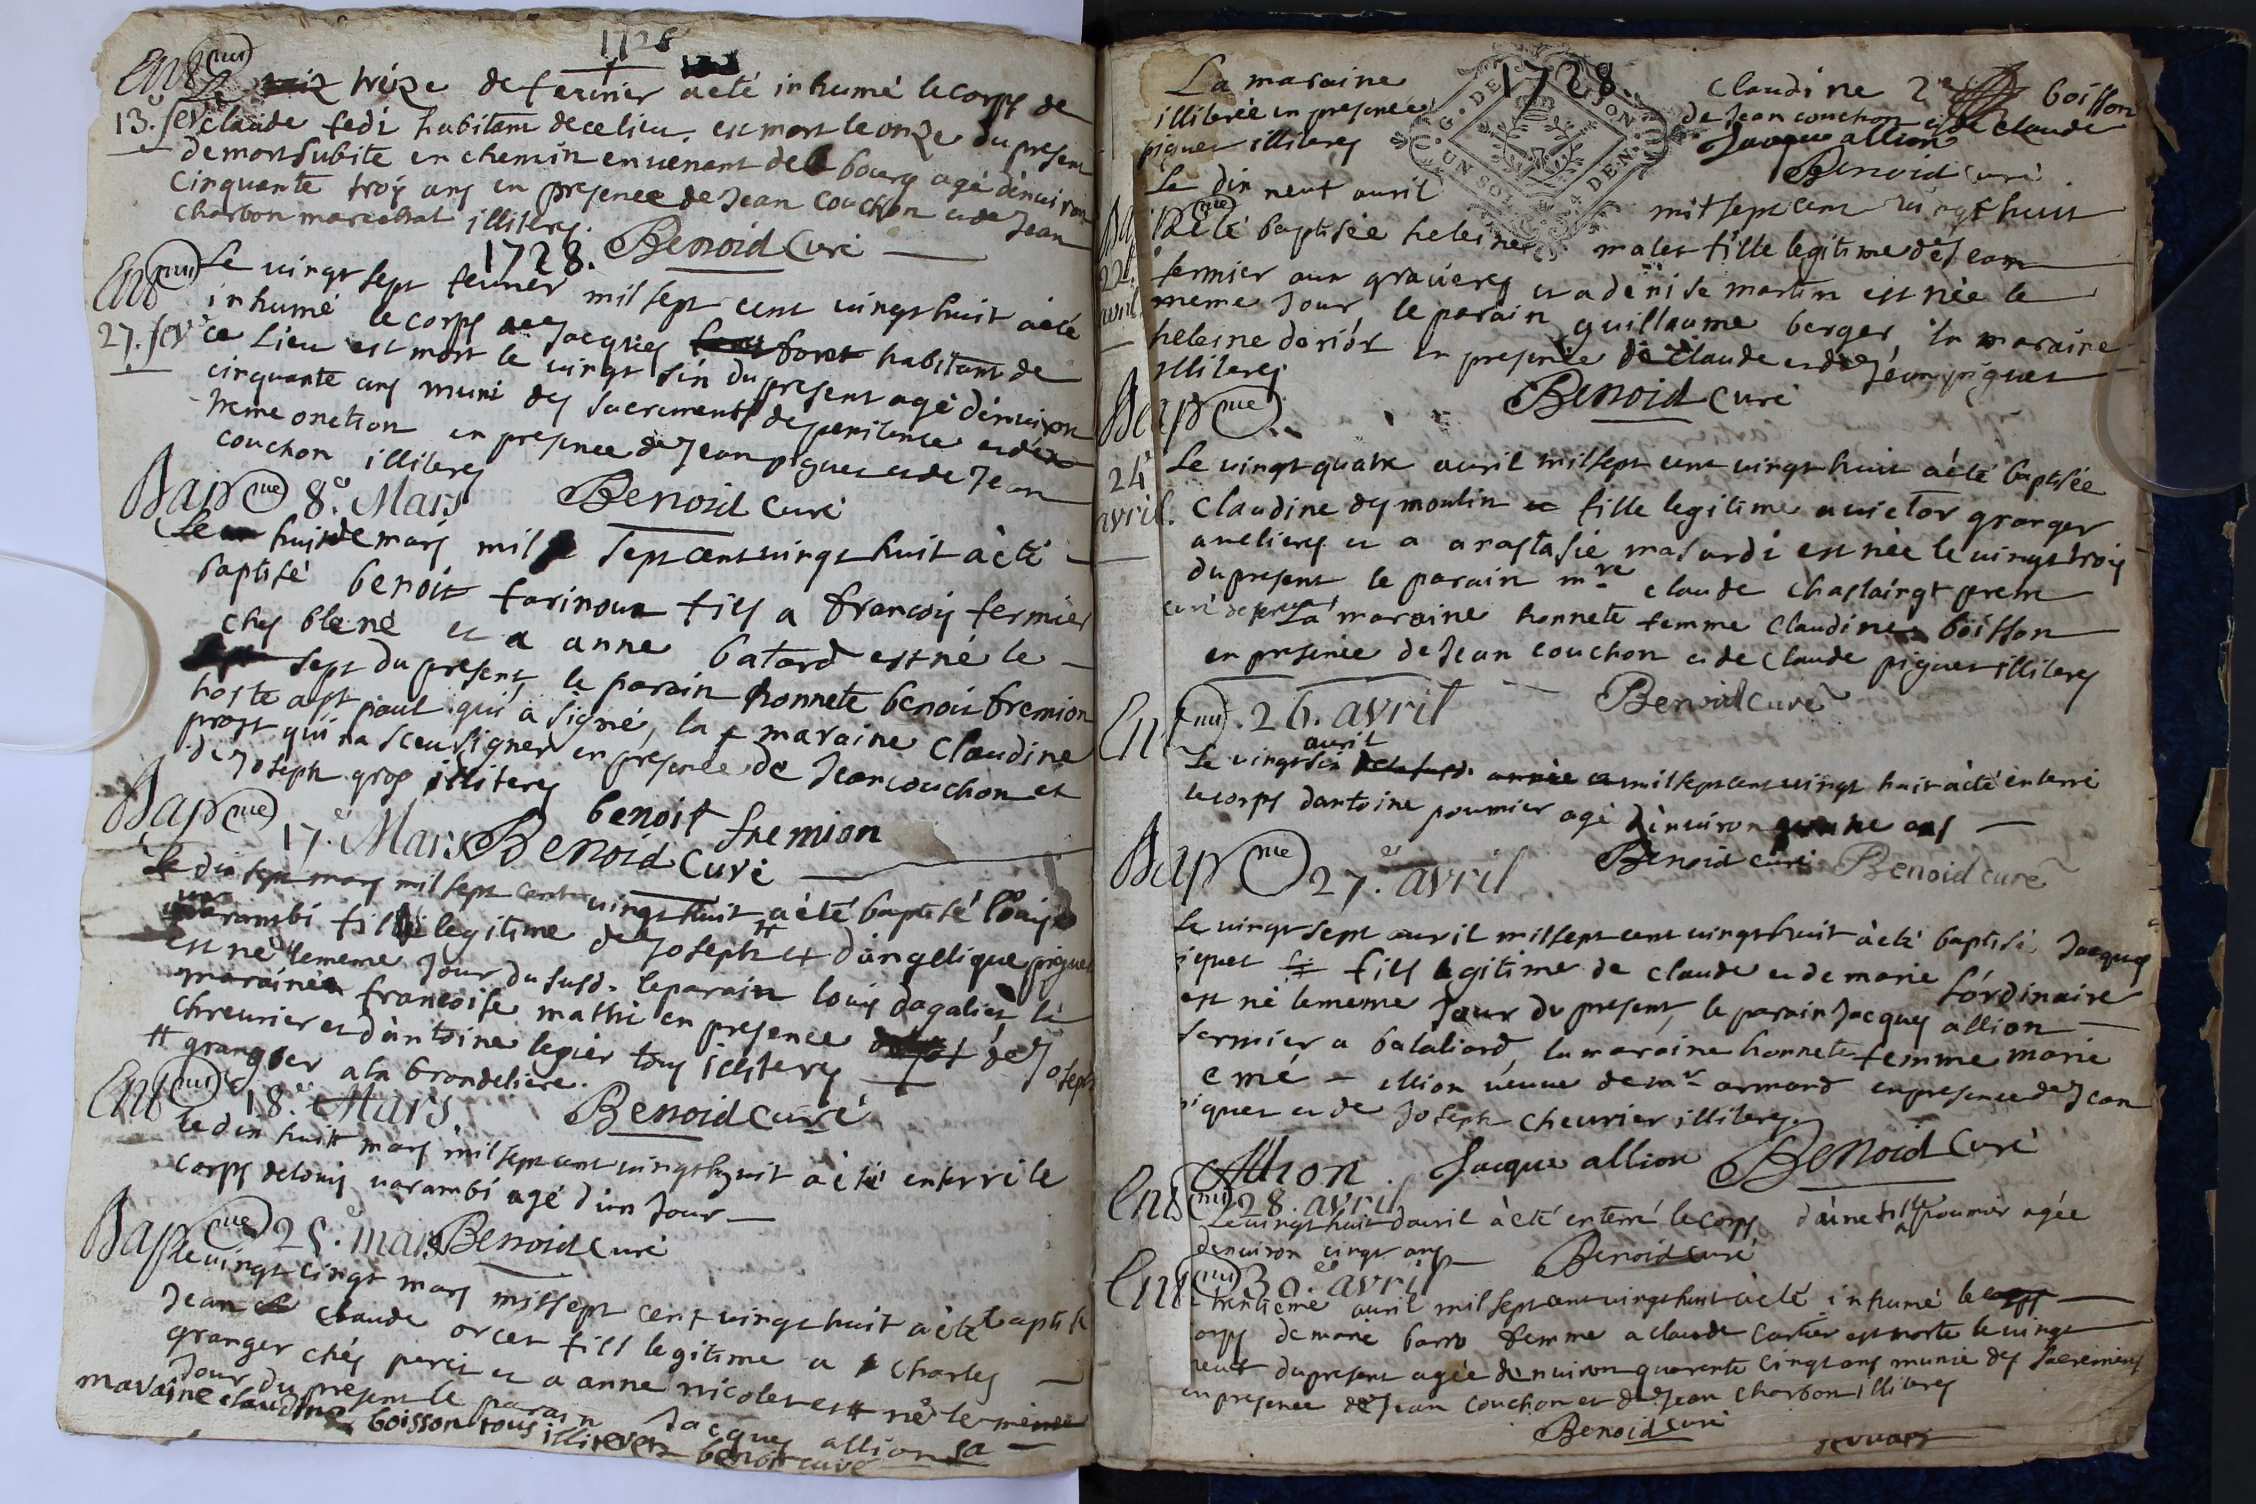 1728
Le treize de fevrier a eté inhumé le corps de
13. fev claude fedi habitant de ce lieu est mort le onze du present
de mort subite en chemin en venant de bourg agé denviron
cinquante troy ans en presence de Jean couchon et de Jean
charbon marechal illiterez.
Benoid Curé
1728.
Le vingt sept fevrier mil sept cent vingt huit a eté
27. fev
inhumé le corps de Jacques font habitant de
ce Lieu est mort le vingt sin du present agé denviron
cinquante ans muni des sacrements de penitence et dex
treme onction en presence de Jean piguet et de Jean
couchon illiterez
Benoid Curé
Bap me 8.e Mars
Le huit de mars mil sept cent vingt huit à eté
baptisé benoit farinoux fils a francois fermier
ches blene et a anne batard est né le
sept du present, le parain honnete benoit fremion
hoste a st paul qui à signé, la maraine claudine
prost qui na sceu signer en presence de Jean couchon et
de Joseph gros illiterez
benoit fremion
Bap me 17.e Mars Benoid Curé
Le dix sept mars mil sept cent vingt huit a eté baptisé louis
varambi fils legitime de Joseph # et dangelique piguet
est né le meme Jour du susd. le parain louis dagalier la
maraine francoise mathi en presence de Joseph
chevrier et dantoine legier tous illiterez
# granger a la brondeliere.
18.e Mars Benoid Curé
le dix huit mars mil sept cent vingt huit a eté enterré le
corps de louis varambi agé dun Jour
Bap me 25.e mars Benoid Curé
Le vingt cinqt mars mil sept cent vingt huit a eté baptisé
Jean claude orcet fils legitime a charles
granger chés perci et a anne nicolet est né le meme
Jour du present le parain Jacques allion sa
maraine claudine boisson tous illiterez benoit curé
1728.
La maraine claudine boisson
illiterée en presence de Jean couchon et de claude
piguet illiterez Jacque allion
Benoid curé
G. DE ON. UN SOL DEN.
Le dix neuf avril mil sept cent vingt huit
a eté baptisée heleine malet fille legitime de Jean
22 avril
fermier aux gravieres et a denise martin est née le
meme Jour, le parain guillaume berger, la maraine
heleine doriot en presence de claude et de Jean piguet
illiterez
Benoid Curé
Bap me
24 avril.
Le vingt quatre avril mil sept cent vingt huit à eté baptisée
claudine desmoulin fille legitime a victor granger
aux liers et a anastasie masardi est née le vingt trois
du present le parain mre claude chastaingt pretre
La maraine honnete femme claudine boisson
en presence de Jean couchon et de claude piguet illiterez
Benoid curé
26. avril
avril
Le vingt sin mil sept cent vingt huit à eté enterré
le corps dantoine poumier agé denviron ans
Benoid curé Benoid curé
Bap me 27.e avril
Le vingt sept avril mil sept cent vingt huit à eté baptisé Jacques
piguet fils legitime de claude et de marie lordinaire
est né le meme Jour du present, le parain Jacques allion
fermier a bataliard, la maraine honnete femme marie
emé allion veuve de mr armand en presence de Jean
piguet et de Joseph chevrier illiterez.
Allion. Jacque allion Benoid Curé
28. avril
Le vingt huit davril à eté enterré le corps fille poumier agée
denviron cinqt ans Benoid curé
30.e avril
trentieme avril mil sept cent vingt huit à eté inhumé le
corps de marie barro femme a claude cartier est morte le vingt
neuf du present agée denviron quarente cinqt ans munie des sacremens
en presence de Jean couchon et de Jean charbon illiterez
Benoid curé